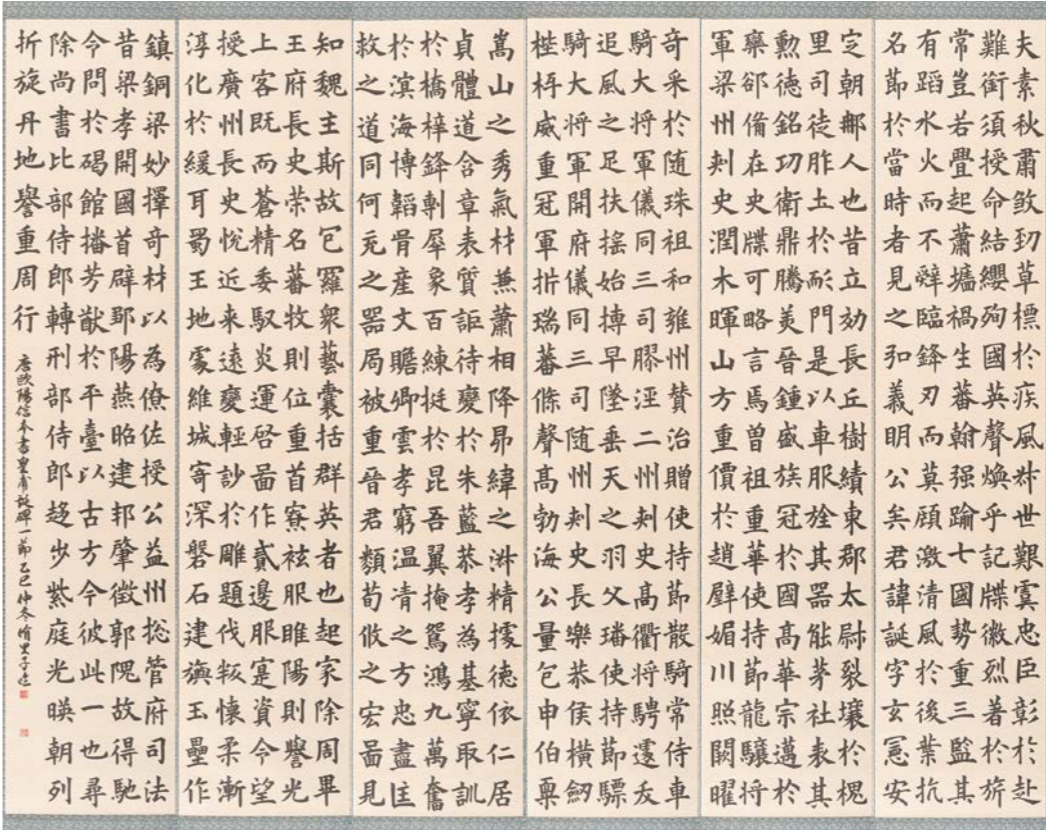 夫素秋肅煞勁草標於疾風叔世艱虞忠臣彰於赴
難銜須授命結纓殉國英聲煥乎記牒徽烈著於旂
常豈若疊起蕭墻禍生蕃翰强踰七國勢重三監其
有蹈水火而不辭臨鋒刃而莫顧激清風於後葉抗
名節於當時者見之弘義明公矣君諱誕字玄憲安
定朝那人也昔立効長丘樹績東郡太尉裂壤於槐
里司徒胙土於耏門是以車服旌其器能茅社表其
勳德銘功衛鼎騰美晉鍾盛族冠於國高華宗邁於
欒郤備在史牒可略言焉曾祖重華使持節龍驤將
軍梁州刺史潤木暉山方重價於趙璧媚川照闕曜
奇采於随珠祖和雍州贊治贈使持節散騎常侍車
騎大將軍儀同三司膠涇二州刺史高衢將騁遽夭
追風之足扶搖始摶早墜垂天之羽父璠使持節驃
騎大將軍開府儀同三司随州刺史長樂恭侯橫劒
梐枑威重冠軍析瑞蕃條聲高勃海公量包申伯稟
嵩山之秀氣材兼蕭相降昴緯之淋精據德依仁居
貞體道含章表質詎待變於朱藍恭孝為基寧取訓
於橋梓鋒剸犀象百練挺於昆吾翼掩鴛鴻九萬奮
於溟海博韜骨産文贍卿雲孝窮温凊之方忠盡匡
救之道同何充之器局被重晉君類荀攸之宏啚見
知魏主斯故包羅衆藝囊括群英者也起家除周畢
王府長史榮名蕃牧則位重首寮袨服睢陽則譽光
上客既而蒼精委馭炎運啓啚作貳邊服寔資令望
授廣州長史悅近来遠變輕訬於雕題伐叛懷柔漸
淳化於緩耳蜀王地處維城寄深磐石建旟玉壘作
鎮銅梁妙擇奇材以為僚佐授公益州捴管府司法
昔梁孝開國首辟鄒陽燕昭建邦肇徵郭隗故得馳
令問於碣館播芳猷於平臺以古方今彼此一也尋
除尚書比部侍郎轉刑部侍郎趍步紫庭光暎朝列
折旋丹地譽重周行
唐歐陽信本書皇甫誕碑一節乙巳仲冬